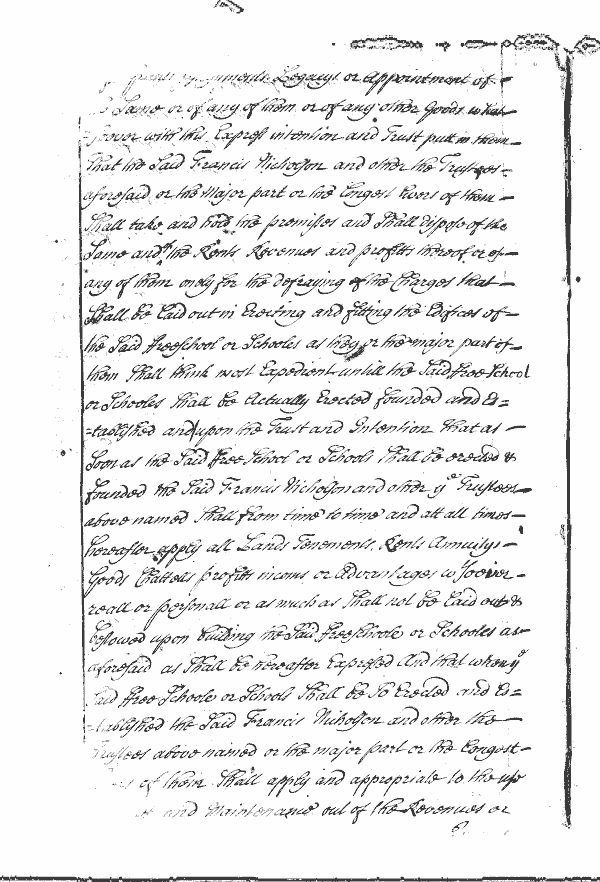 Legacys or appointment of
Same or of any of them or of any other Goods what
soever with this Express intention and Trust putt in them
that the Said Francis Nicholson and other the Trustees
aforesaid or the Major part or the Longest livers of them
Shall take and hold the premisses and Shall dispose of the
Same and the Rents Revenues and profitts thereof or of
any of them onely for the defraying of the Charges that
Shall be Laid out in Erecting and fitting the Edifices of
the Said ffreeschool or Schooles as they or the major part of
them Shall think most Expedient untill the Said ffree School
or Schooles Shall be Actually Erected founded and Es=
=tablished and upon the Trust and Intention that as
Soon as the Said ffree School or Schools Shall be erected &
founded the Said Francis Nicholson and other ye Trustees
above named Shall from time to time and att all times
hereafter apply all Lands Tenements Rents Annuitys
Goods Chattells profitts incoms or Advantages wtsoever
reall or personall or as much as Shall not be Laid out &
bestowed upon building the Said ffreeschoole or Schooles as
aforesaid as Shall be hereafter Expressed And that when ye
Said ffree Schoole or Schools Shall be So Erected and Es=
=tablished the Said Francis Nicholson and other the
Trustees above named or the major part or the Longest
of them Shall apply and appropriate to the use
and Maintenance out of the Revenues or